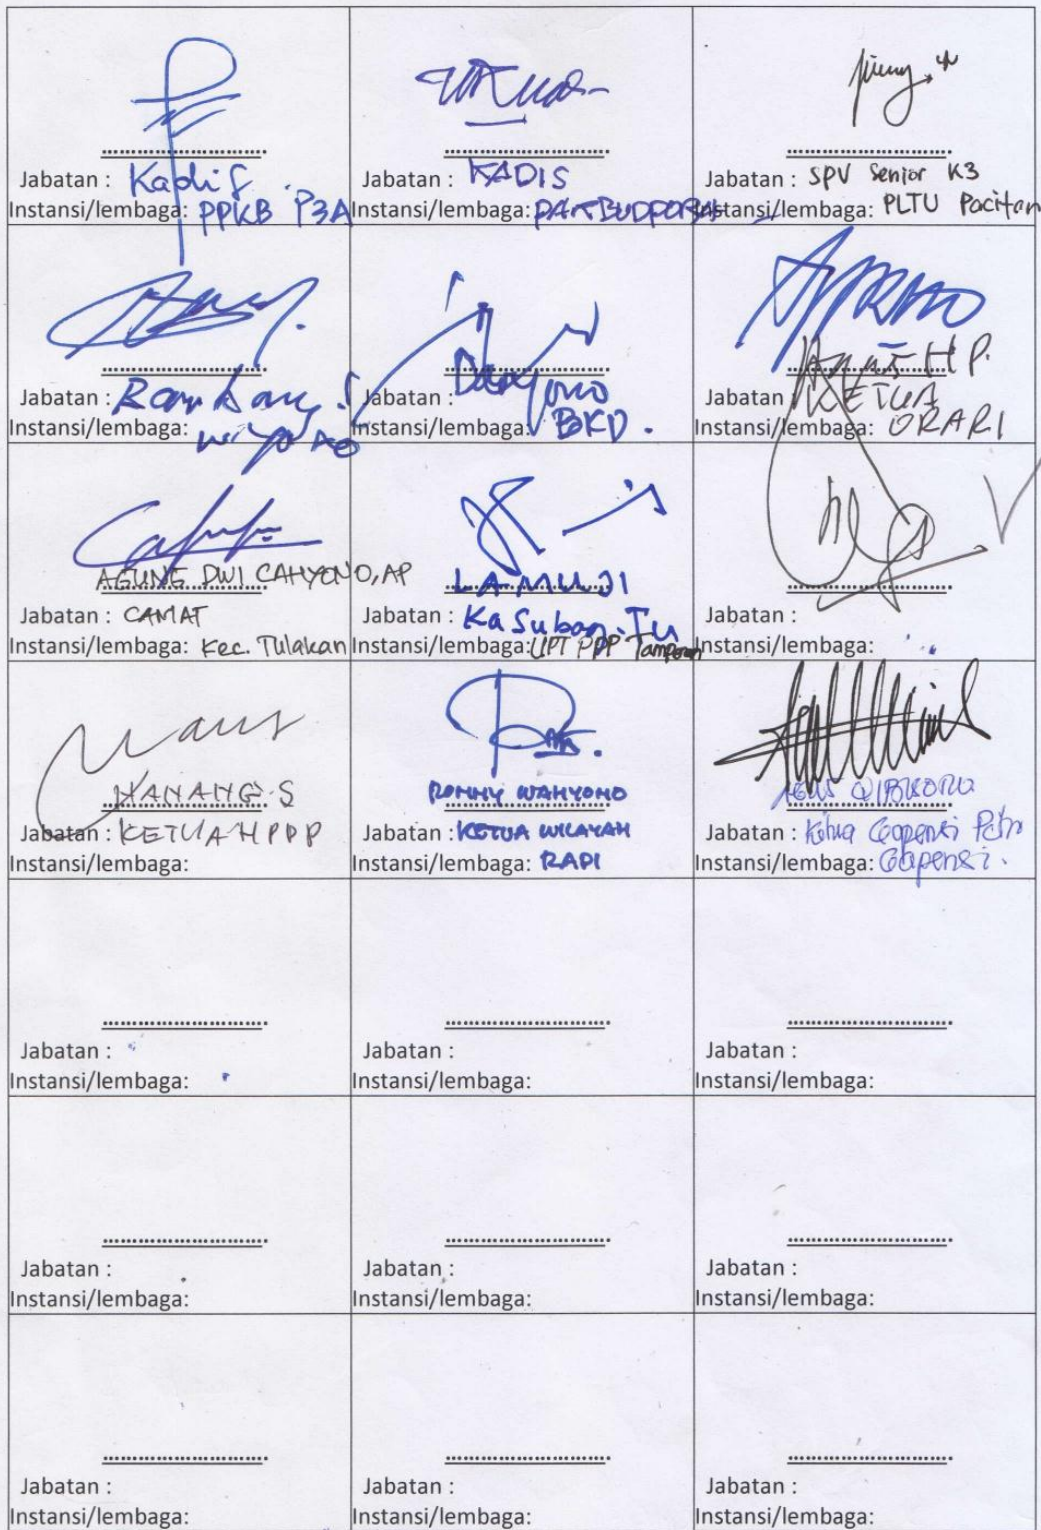 Jabatan : Kadis
Instansi/lembaga: PPKB P3A
Jabatan : KADIS
Instansi/lembaga:
Jabatan : SPV Senior K3
Instansi/lembaga: PLTU Pacitan
Jabatan : Bambang S
Instansi/lembaga:
Jabatan : Daryono
Instansi/lembaga: BKD.
HP.
Jabatan : KETUA
Instansi/lembaga: ORARI
AGUNG DWI CAHYONO, AP
Jabatan : CAMAT
Instansi/lembaga: Kec. Tulakan
LAMUJI
Jabatan : Ka Subag. Tu
Instansi/lembaga: UPT PPP Tamperan
Jabatan :
Instansi/lembaga:
NANANG S
Jabatan : KETUA HPPP
Instansi/lembaga:
RONNY WAHYONO
Jabatan : KETUA WILAYAH
Instansi/lembaga: RAPI
Jabatan : Ketua Gapensi Pctn
Instansi/lembaga: Gapensi.
Jabatan :
Instansi/lembaga:
Jabatan :
Instansi/lembaga:
Jabatan :
Instansi/lembaga:
Jabatan :
Instansi/lembaga:
Jabatan :
Instansi/lembaga:
Jabatan :
Instansi/lembaga:
Jabatan :
Instansi/lembaga:
Jabatan :
Instansi/lembaga:
Jabatan :
Instansi/lembaga: